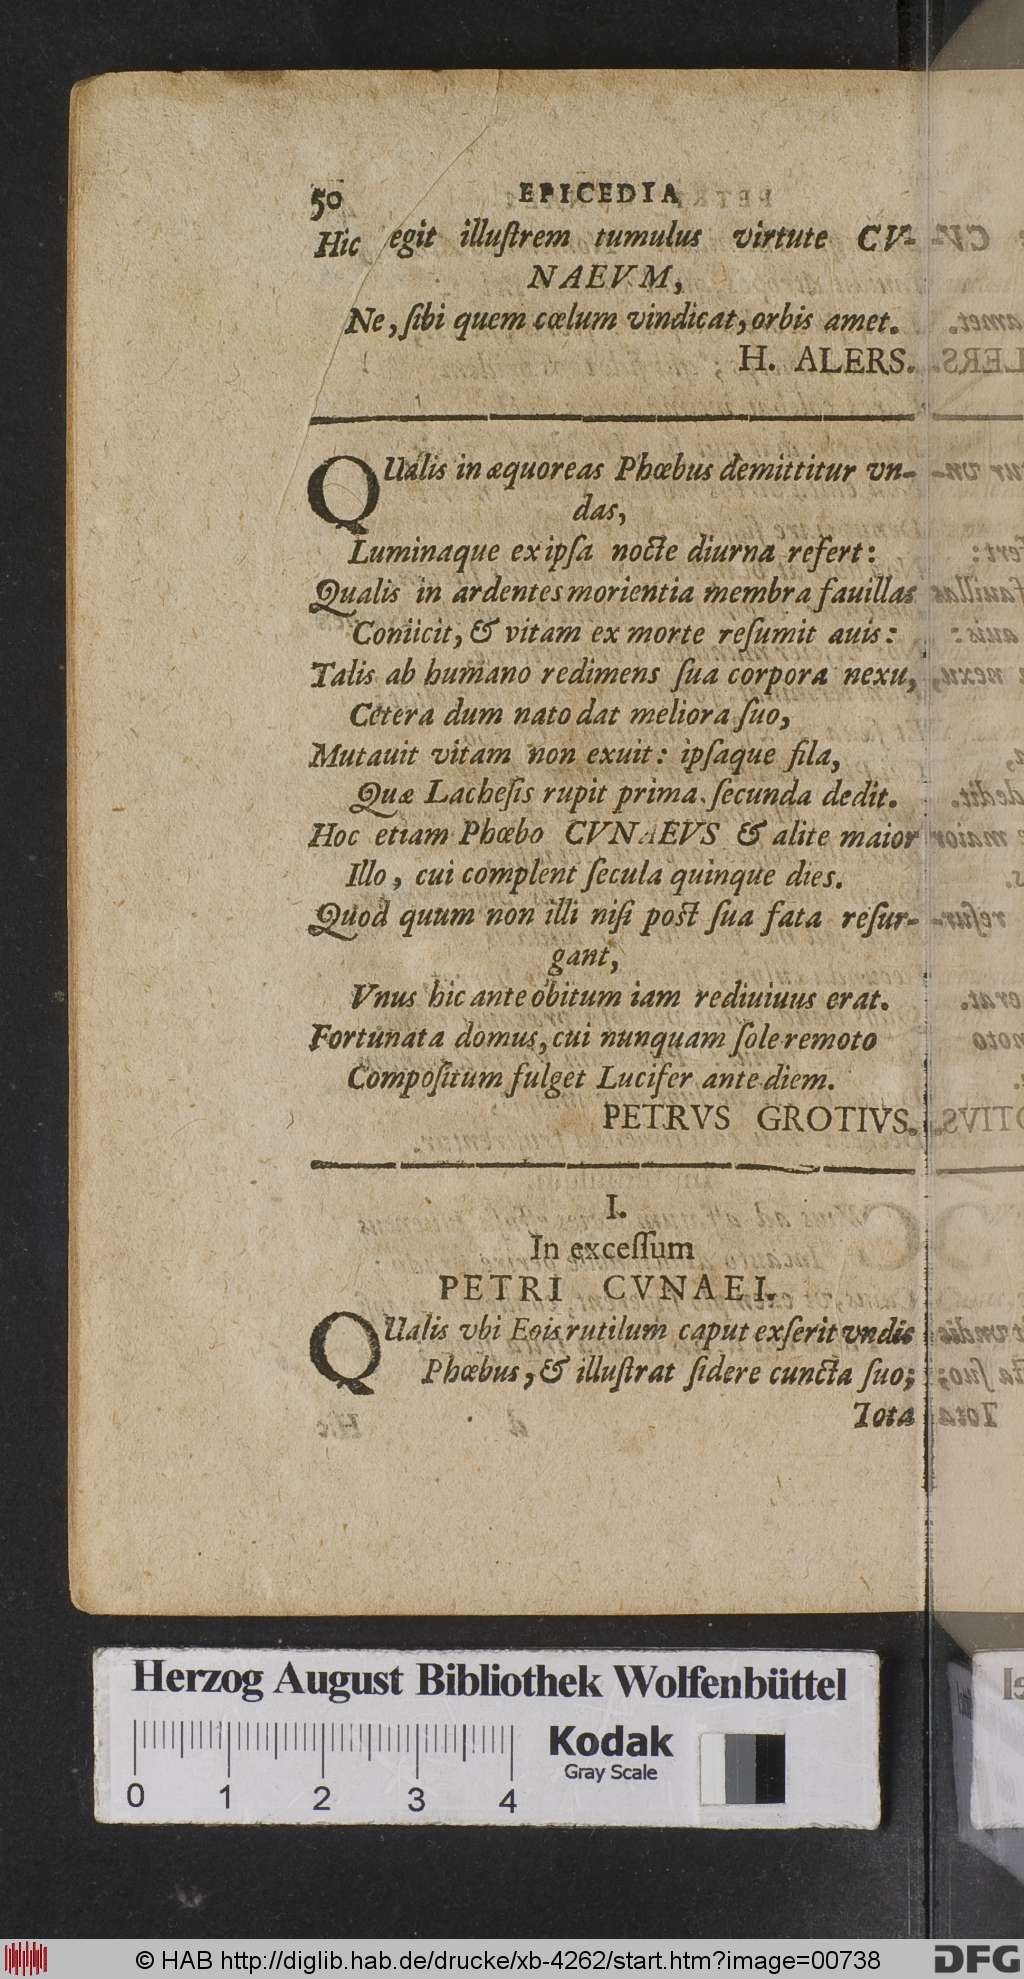 50 EPICEDIA
Hic tegit illuſtrem tumulus virtute CV-
NAEVM,
Ne, ſibi quem cœlum vindicat, orbis amet.
H. ALERS.
QUalis in æquoreas Phœbus demittitur vn-
das,
Luminaque ex ipſa nocte diurna refert:
Qualis in ardentes morientia membra fauillas
Coniicit, & vitam ex morte reſumit auis:
Talis ab humano redimens ſua corpora nexu,
Cetera dum nato dat meliora ſuo,
Mutauit vitam non exuit: ipſaque fila,
Quæ Lacheſis rupit prima, ſecunda dedit.
Hoc etiam Phœbo CVNAEVS & alite maior
Illo, cui complent ſecula quinque dies.
Quod quum non illi niſi post ſua fata reſur-
gant,
Vnus hic ante obitum iam rediuiuus erat.
Fortunata domus, cui nunquam ſole remoto
Compoſitum fulget Lucifer ante diem.
PETRVS GROTIVS.
I.
In exceſſum
PETRI CVNAEI.
QUalis vbi Eois rutilum caput exſerit vndis
Phœbus, & illuſtrat ſidere cuncta ſuo;
Tota
Herzog August Bibliothek Wolfenbüttel
0 1 2 3 4
Kodak
Gray Scale
© HAB http://diglib.hab.de/drucke/xb-4262/start.htm?image=00738
DFG